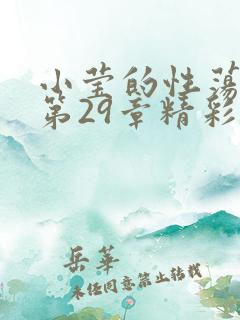 小莹的性荡
第29章精彩
岳華
未经同意禁止转载